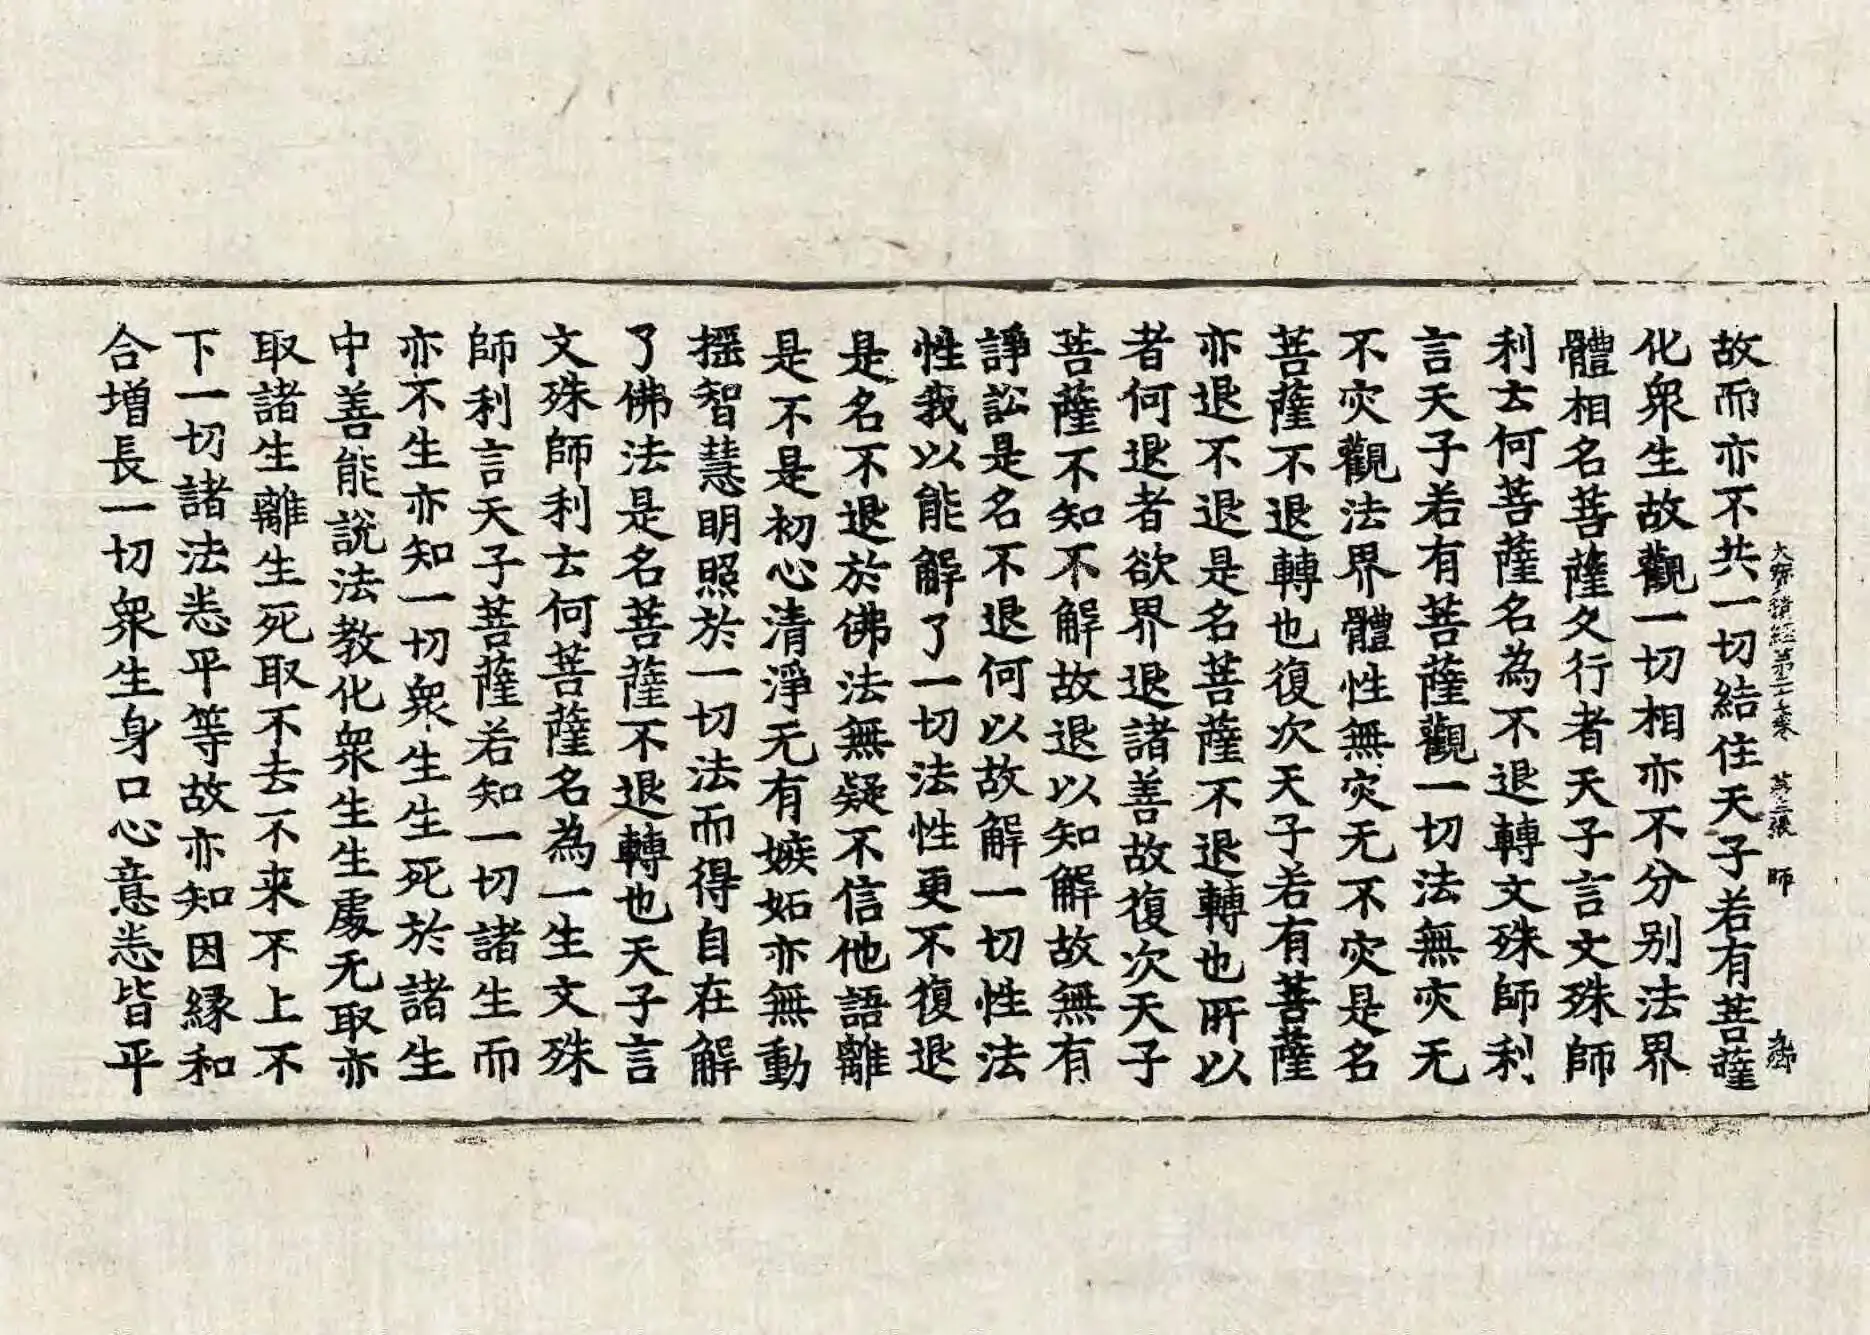 大寳積經第二十七卷 第三張 師
故而亦不共一切結住天子若有菩薩
化衆生故觀一切相亦不分别法界
體相名菩薩久行者天子言文殊師
利云何菩薩名為不退轉文殊師利
言天子若有菩薩觀一切法無灾无
不灾觀法界體性無灾无不灾是名
菩薩不退轉也復次天子若有菩薩
亦退不退是名菩薩不退轉也所以
者何退者欲界退諸善故復次天子
菩薩不知不解故退以知解故無有
諍訟是名不退何以故解一切性法
性我以能解了一切法性更不復退
是名不退於佛法無疑不信他語離
是不是初心清淨无有嫉妬亦無動
摇智慧明照於一切法而得自在解
了佛法是名菩薩不退轉也天子言
文殊師利云何菩薩名為一生文殊
師利言天子菩薩若知一切諸生而
亦不生亦知一切衆生生死於諸生
中善能説法教化衆生生處无取亦
取諸生離生死取不去不来不上不
下一切諸法悉平等故亦知因縁和
合增長一切衆生身口心意悉皆平